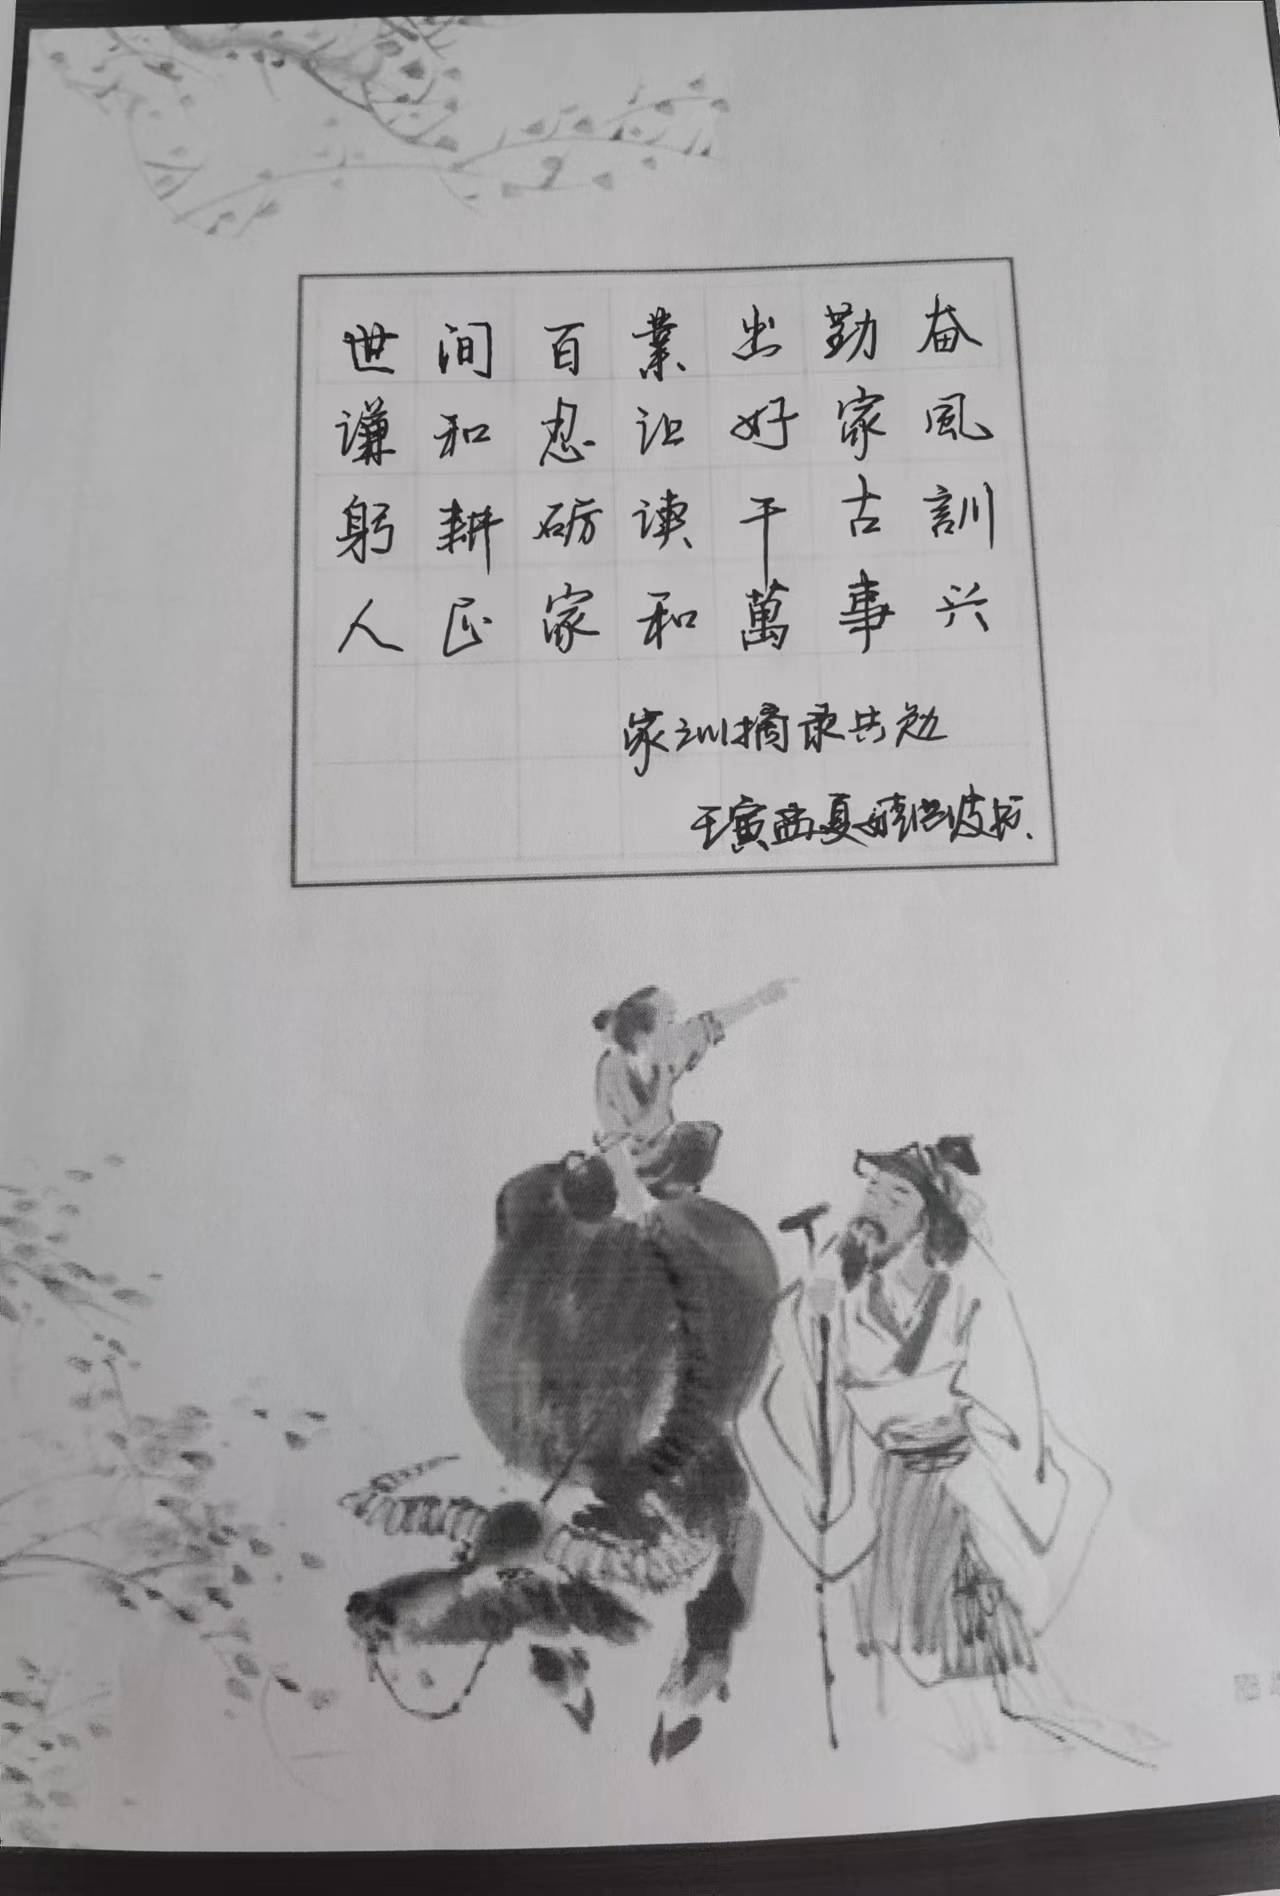 世间百業出勤奋
谦和忍让好家風
躬耕砺读千古訓
人正家和萬事兴
家训摘录共勉
壬寅孟夏